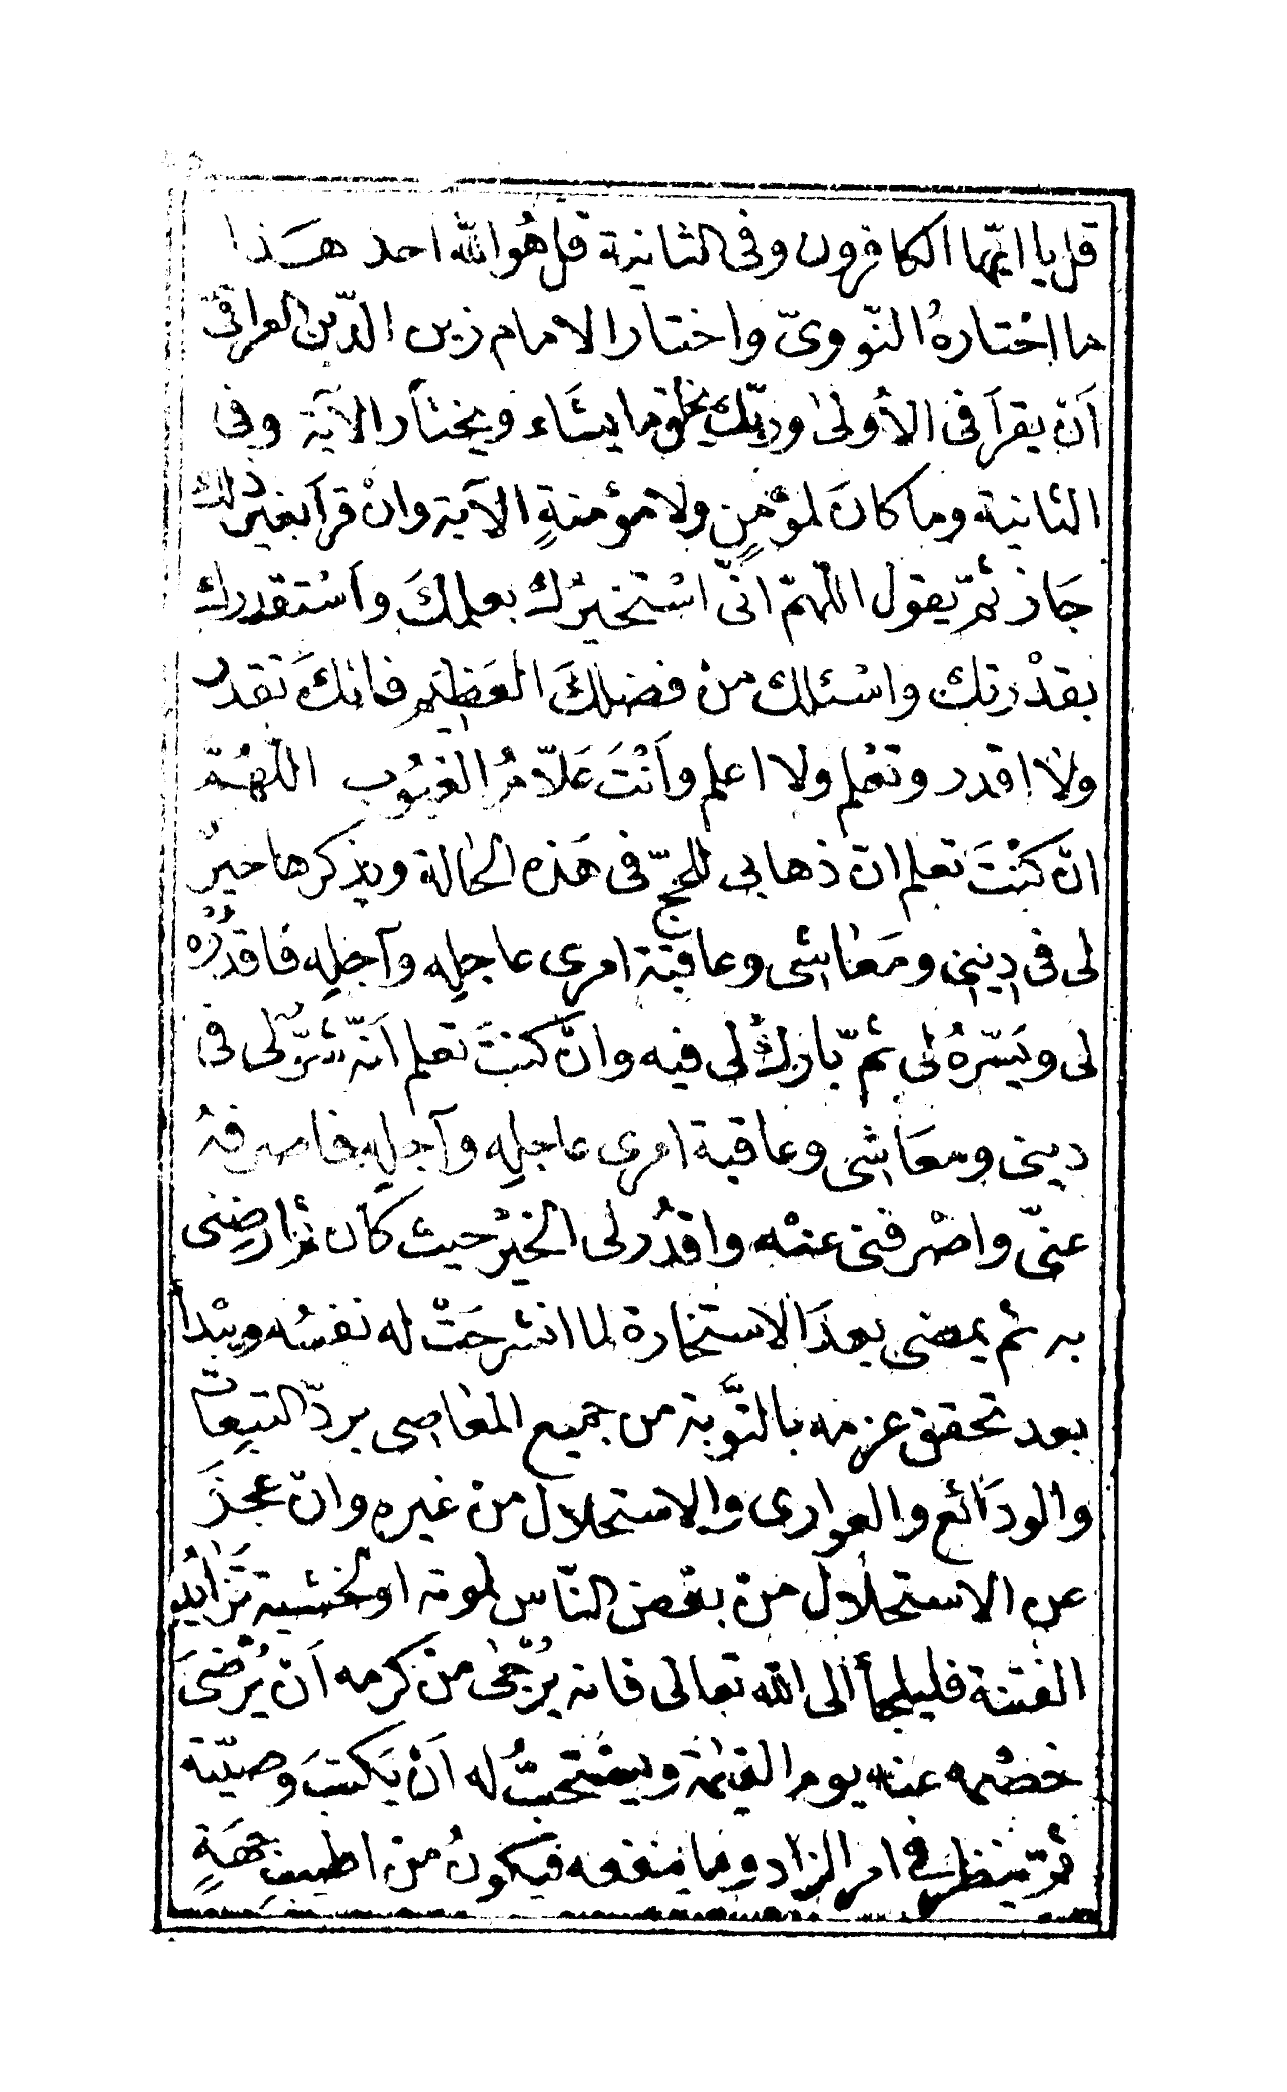 قل يا ايّها الكافرون وفى الثانية قل هُو الله احد هَذا
ما اخْتارهُ النّووىّ واختار الامام زين الدّين العراقىّ
اَن يقرأ فى الأولىٰ وربّك يخلق ما يشَاء ويختاَر الآية وفى
الثانية وما كانَ لمؤمِنٍ ولا مؤمنةٍ الآية وانْ قراَ بغير ذلك
جَاز ثمّ يقول اللّهمّ انّى اسْتخيرُك بعلمكَ واَسْتقدرك
بقدْرتك واسْئلك منْ فضلكَ العَظيم فانكَ تقدر
ولا اقدر وتعْلم ولا اعلم واَنْتَ عَلّامُ الغيُوب اللّهُمّ
انْ كنْتَ تعلم ان ذهابى للحجّ فى هَذه الحالة ويذكرها خيرٌ
لى فى دينى ومَعاشى وعاقبة امرى عاجلِه وآجلِه فاقدُرْه
لى ويَسّرهُ لى ثمّ بارك لى فيه وانْ كنتَ تعلم اَنّه شرٌّ لى فى
دينى ومعَاشى وعاقبة امرى عاجلِه وآجلِه فاصرفهُ
عنّى واصْرفنى عنْه واقدُر لى الخيْر حيث كان ثم ارضِنى
به ثم يمضى بعدَ الاستخارة لما انشرحَتْ له نفسُه ويبْدأ
بعد تحقق عزمه بالتَّوبة من جميع المعاصى بردّ التبِعات
والودَائع والعوارى والاستحلال منْ غيره وانْ عجزَ
عن الاستحلال منْ بعْض النّاس لموته او لخشية تَزايُد
الفتنة فليلجأ الى الله تعالى فانه يُرْجىٰ منْ كرمه اَنْ يُرْضىَ
خصْمه عنه يوم القيٰمة ويسْتحبُّ له اَنْ يَكتبَ وصيّته
ثمّ ينظر فى امر الزاد وما ينفعه فيكونُ من اطيب جهَةٍ